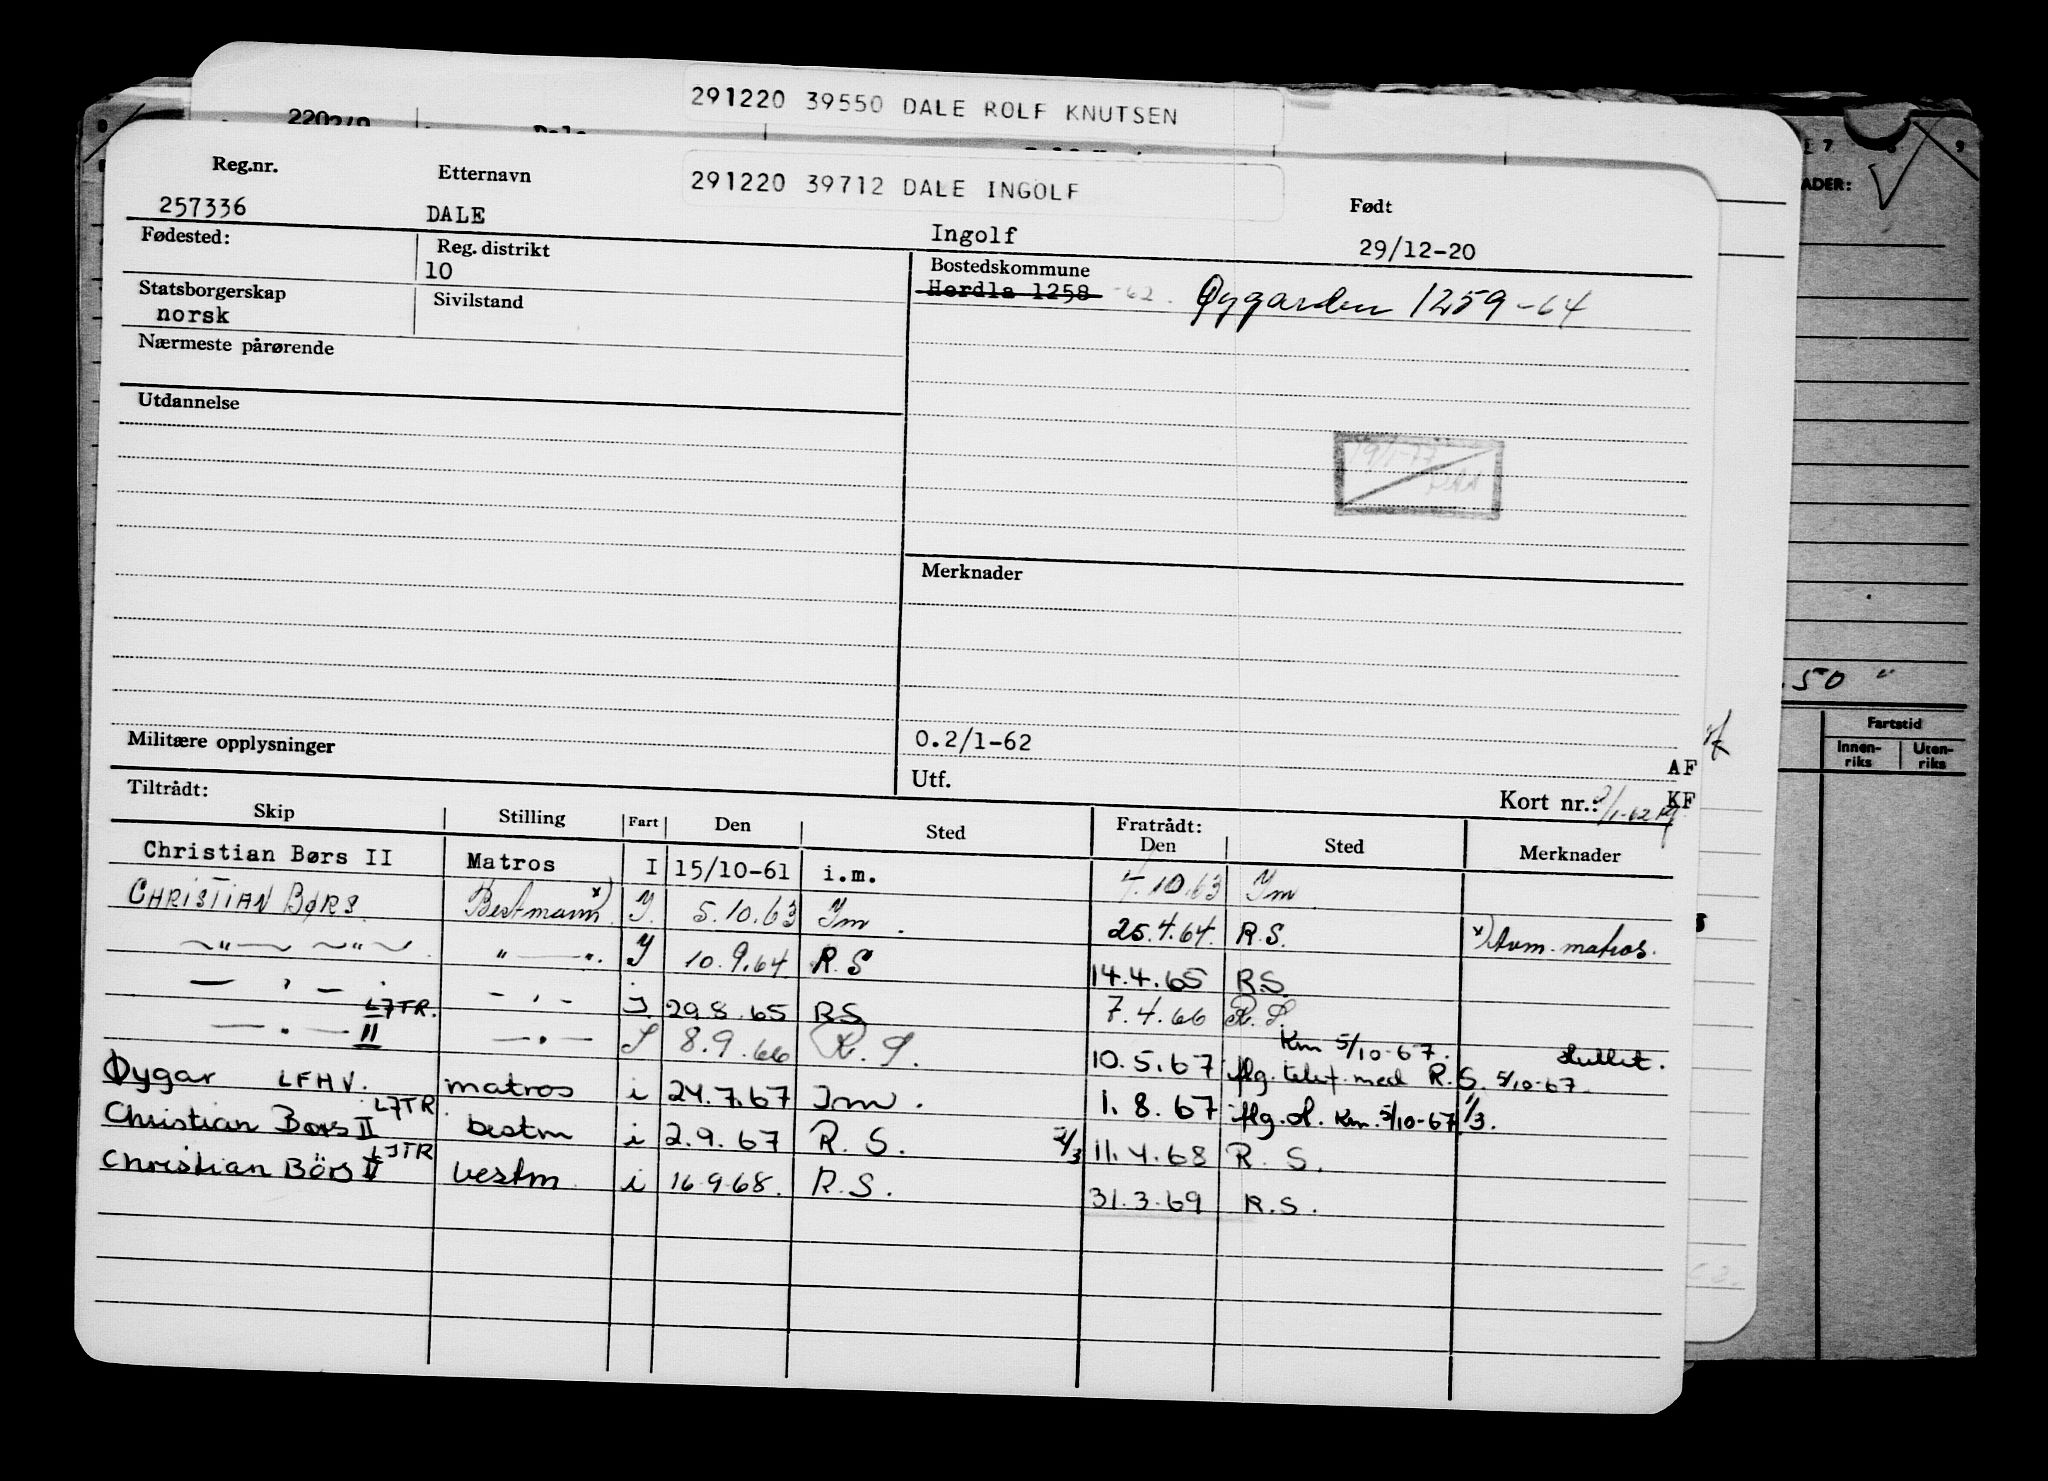 291220 39550 DALE ROLF KNUTSEN
291220 39712 DALE INGOLF
Reg.nr. Etternavn Født
257336 DALE Ingolf 29/12-20
Fødested: Reg. distrikt Bostedskommune
10 Herdla 1258 -62. Øygarden 1259-64
Statsborgerskap Sivilstand
norsk
Nærmeste pårørende
Utdannelse
Merknader
Militære opplysninger 0.2/1-62
AF
Utf. Kort nr.: KF
Tiltrådt: Fratrådt:
Skip Stilling Fart Den Sted Den Sted Merknader
Christian Børs II Matros I 15/10-61 i.m. 4.10.63 Im
CHRISTIAN BØRS. Bestmann x) I. 5.10.63 Im. 25.4.64. R.S. x) Avm. matros.
— " — — " — . " — " . I 10.9.64 R.S 14.4.65 R.S.
— ' — - ' - I 29.8.65 R.S 7.4.66 R.S.
— " — LJTR. II — " — I 8.9.66 R.S. 10.5.67 iflg. telef. med R.S. 5/10-67. Km 5/10-67. sluttet.
Øygar LFHV. matros i 24.7.67 Im. 1.8.67 iflg. d. Km. 5/10-67 1/3.
Christian Børs II LJTR bestm i 2.9.67 R.S. 2/3 11.4.68 R.S.
Christian Börs II LJTR bestm i 16.9.68. R.S. 31.3.69 R.S.
ADER:
50 "
Fartstid
Innen-riks Uten-riks